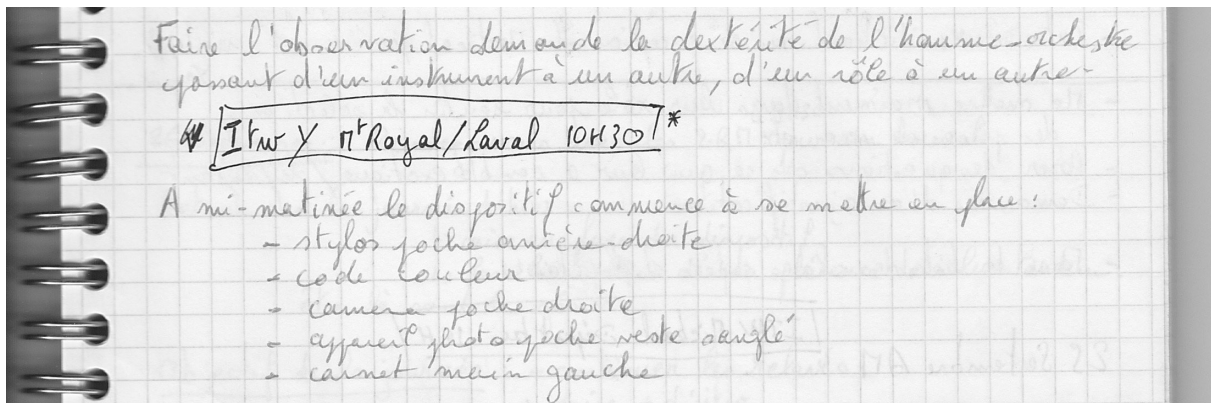 Faire l'observation demande la dextérité de l'homme-orchestre
passant d'un instrument à un autre, d'un rôle à un autre.
Itw Y Mt Royal/Laval 10H30 *
A mi-matinée le dispositif commence à se mettre en place :
- stylos poche arrière-droite
- code couleur
- camera poche droite
- appareil photo poche veste sanglé
- carnet main gauche